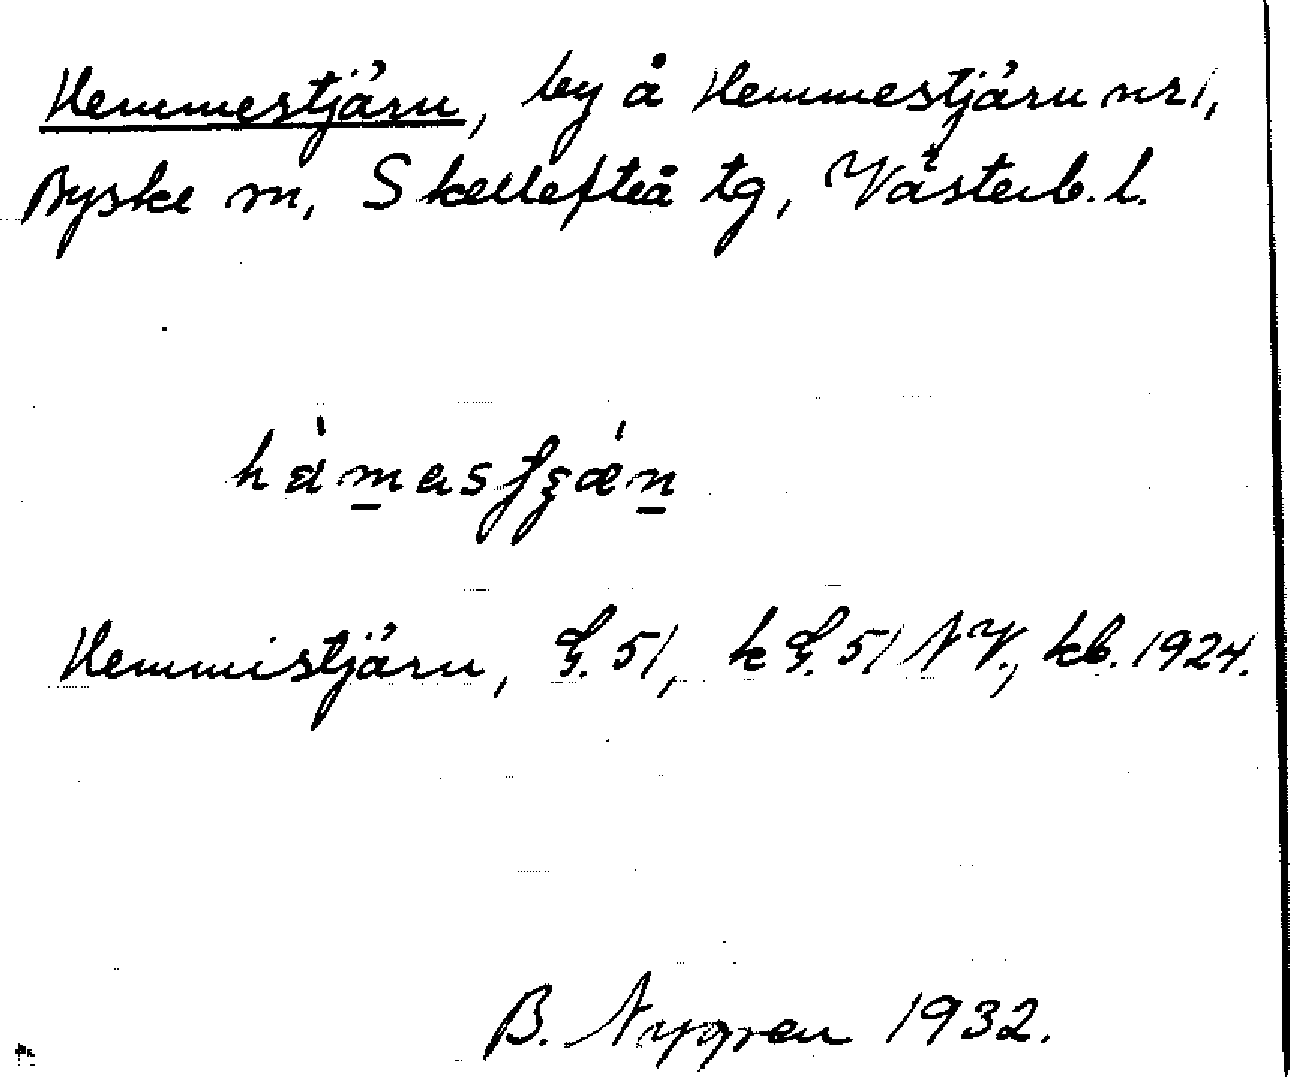 Hemmestjärn, by å Hemmestjärn nr 1,
Byske sn, Skellefteå tg, Västerb. l.
Hemmistjärn, 51, k 51 NV, kb. 1924.
B. Nygren 1932.